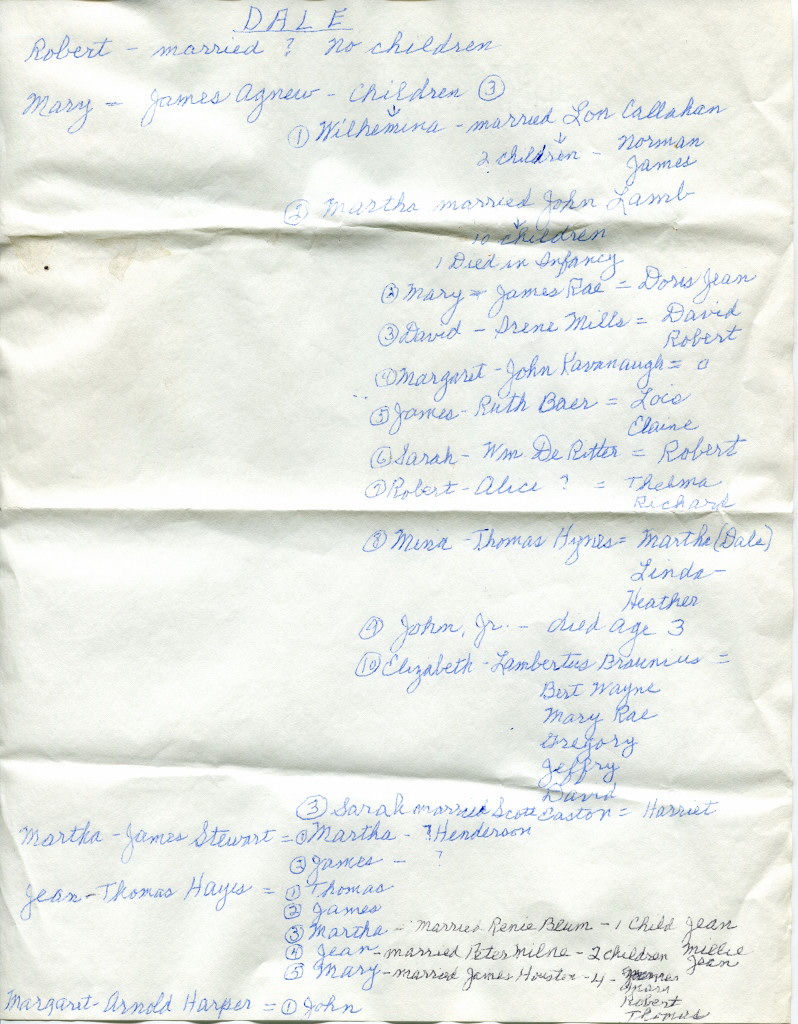 DALE
Robert - married ? No children
Mary = James Agnew - Children ③
① Wilhemina - married Lon Callahan
2 children - Norman
James
② Martha married John Lamb
10 children
1 Died in Infancy
② Mary = James Rae = Doris Jean
③ David - Irene Mills = David
Robert
④ Margaret - John Kavanaugh = 0
⑤ James - Ruth Baer = Lois
Elaine
⑥ Sarah - Wm De Ritter = Robert
⑦ Robert - Alice ? = Thelma
Richard
⑧ Mina - Thomas Hynes = Martha (Dale)
Linda -
Heather
⑨ John, Jr. - died age 3
⑩ Elizabeth - Lambertus Braunius =
Bert Wayne
Mary Rae
Gregory
Jeffry
David
③ Sarah married Scott Easton = Harriet
Martha - James Stewart = ① Martha - ? Henderson
② James - ?
Jean - Thomas Hayes = ① Thomas
② James
③ Martha - Married Renie Blum - 1 Child Jean
④ Jean - married Peter Milne - 2 children Millie
Jean
⑤ Mary - married James Houston - 4 - James
Robert
Thomas
Margaret - Arnold Harper = ① John